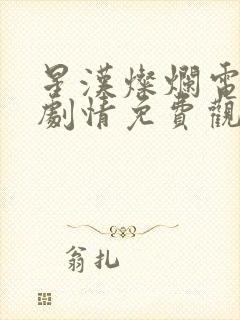 星漢燦爛電
劇情免費觀
翁扎